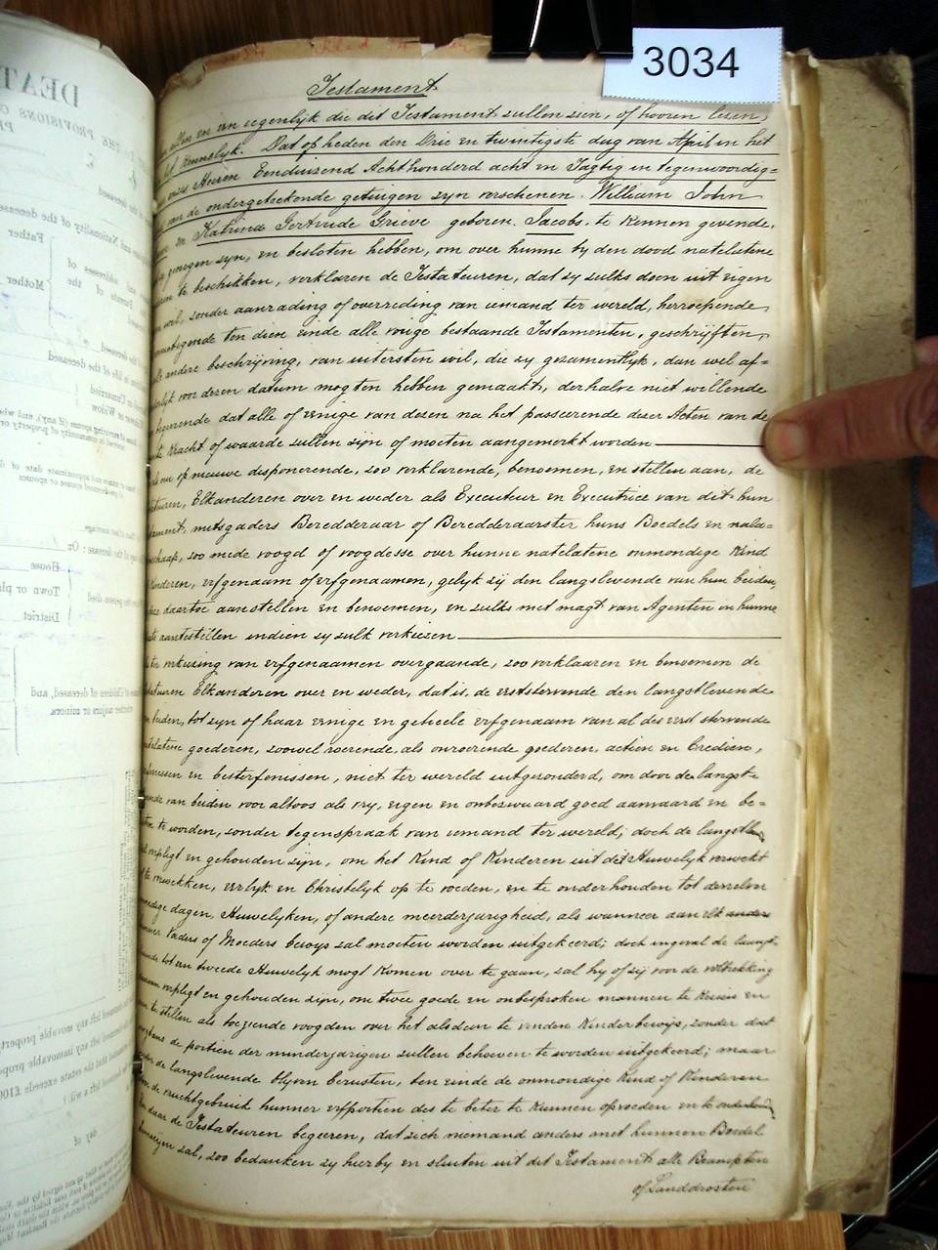 3034
Testament
allen en een iegenlyk die dit Testament zullen zien, of hooren lezen,
Dat op heden den Drie en twintigste dag van April in het
onzes Heeren Eenduizend Achthonderd acht en Tagtig in tegenwoordig=
van de ondergeteekende getuigen zyn verschenen William John
en Katrina Gertruide Grieve geboren Jacobs te kennen gevende,
genegen zyn, en besloten hebben, om over hunne by den dood natelatene
te beschikken, verklaren de Testateuren, dat zy zulks doen uit eigen
wil, zonder aanrading of overreding van iemand ter wereld, herroepende
ten dien einde alle vorige bestaande Testamenten, geschryften,
andere beschryving, van uitersten wil, die zy gezamentlyk, dan wel af=
voor dezen datum mogten hebben gemaakt, derhalve niet willende
begeerende dat alle of eenige van dezen na het passeerende dezer Acten van de
kracht of waarde zullen zijn of moeten aangemerkt worden
nu op nieuw disponerende, zoo verklarende, benoemen, en stellen aan, de
Elkanderen over en weder als Executeur en Executrice van dit hun
mitsgaders Beredderaar of Beredderaarster huns Boedels en nala=
zoo mede voogd of voogdesse over hunne natelatene onmondige Kind
erfgenaam of erfgenaamen, gelyk zij den langslevende van hun beiden,
daartoe aanstellen en benoemen, en zulks met magt van Agenten in hunne
aantestellen indien zy zulk verkiezen
verkiezing van erfgenaamen overgaande, zoo verklaaren en benoemen de
Elkanderen over en weder, dat is, de eerststervende den langstlevende
beiden, tot zyn of haar eenige en geheele erfgenaam van al des eerst stervende
goederen, zoowel roerende, als onroerende goederen, actien en Credieten,
en besterfenissen, niet ter wereld uitgezonderd, om door de langst=
van beiden voor altoos als vry, eigen en onbezwaard goed aanvaard en be=
te worden, zonder tegenspraak van iemand ter wereld; doch de langstle
verpligt en gehouden zijn, om het Kind of Kinderen uit dit Huwelyk verwekt
te verwekken, eerlyk en Christelyk op te voeden, en te onderhouden tot derzelver
dagen, Huwelyken, of andere meerderjarigheid, als wanneer aan elk
Vaders of Moeders bewys zal moeten worden uitgekeerd; doch ingeval de langst=
tot een tweede Huwelyk mogt komen over te gaan, zal hy of zij voor de voltrekking
verpligt en gehouden zijn, om twee goede en onbesproken mannen te kiezen en
te stellen als toeziende voogden over het alsdan te vinden Kinderbewijs, zonder dat
de portien der minderjarigen zullen behoeven te worden uitgekeerd; maar
de langslevende blyven berusten, ten einde de onmondige Kind of Kinderen
de vruchtgebruik hunner erfportien des te beter te kunnen opvoeden en te
daar de Testateuren begeeren, dat zich niemand anders met hunnen Boedel
zal, zoo bedanken zy hierby en sluiten uit dit Testament alle Beampten
of Landdrosten